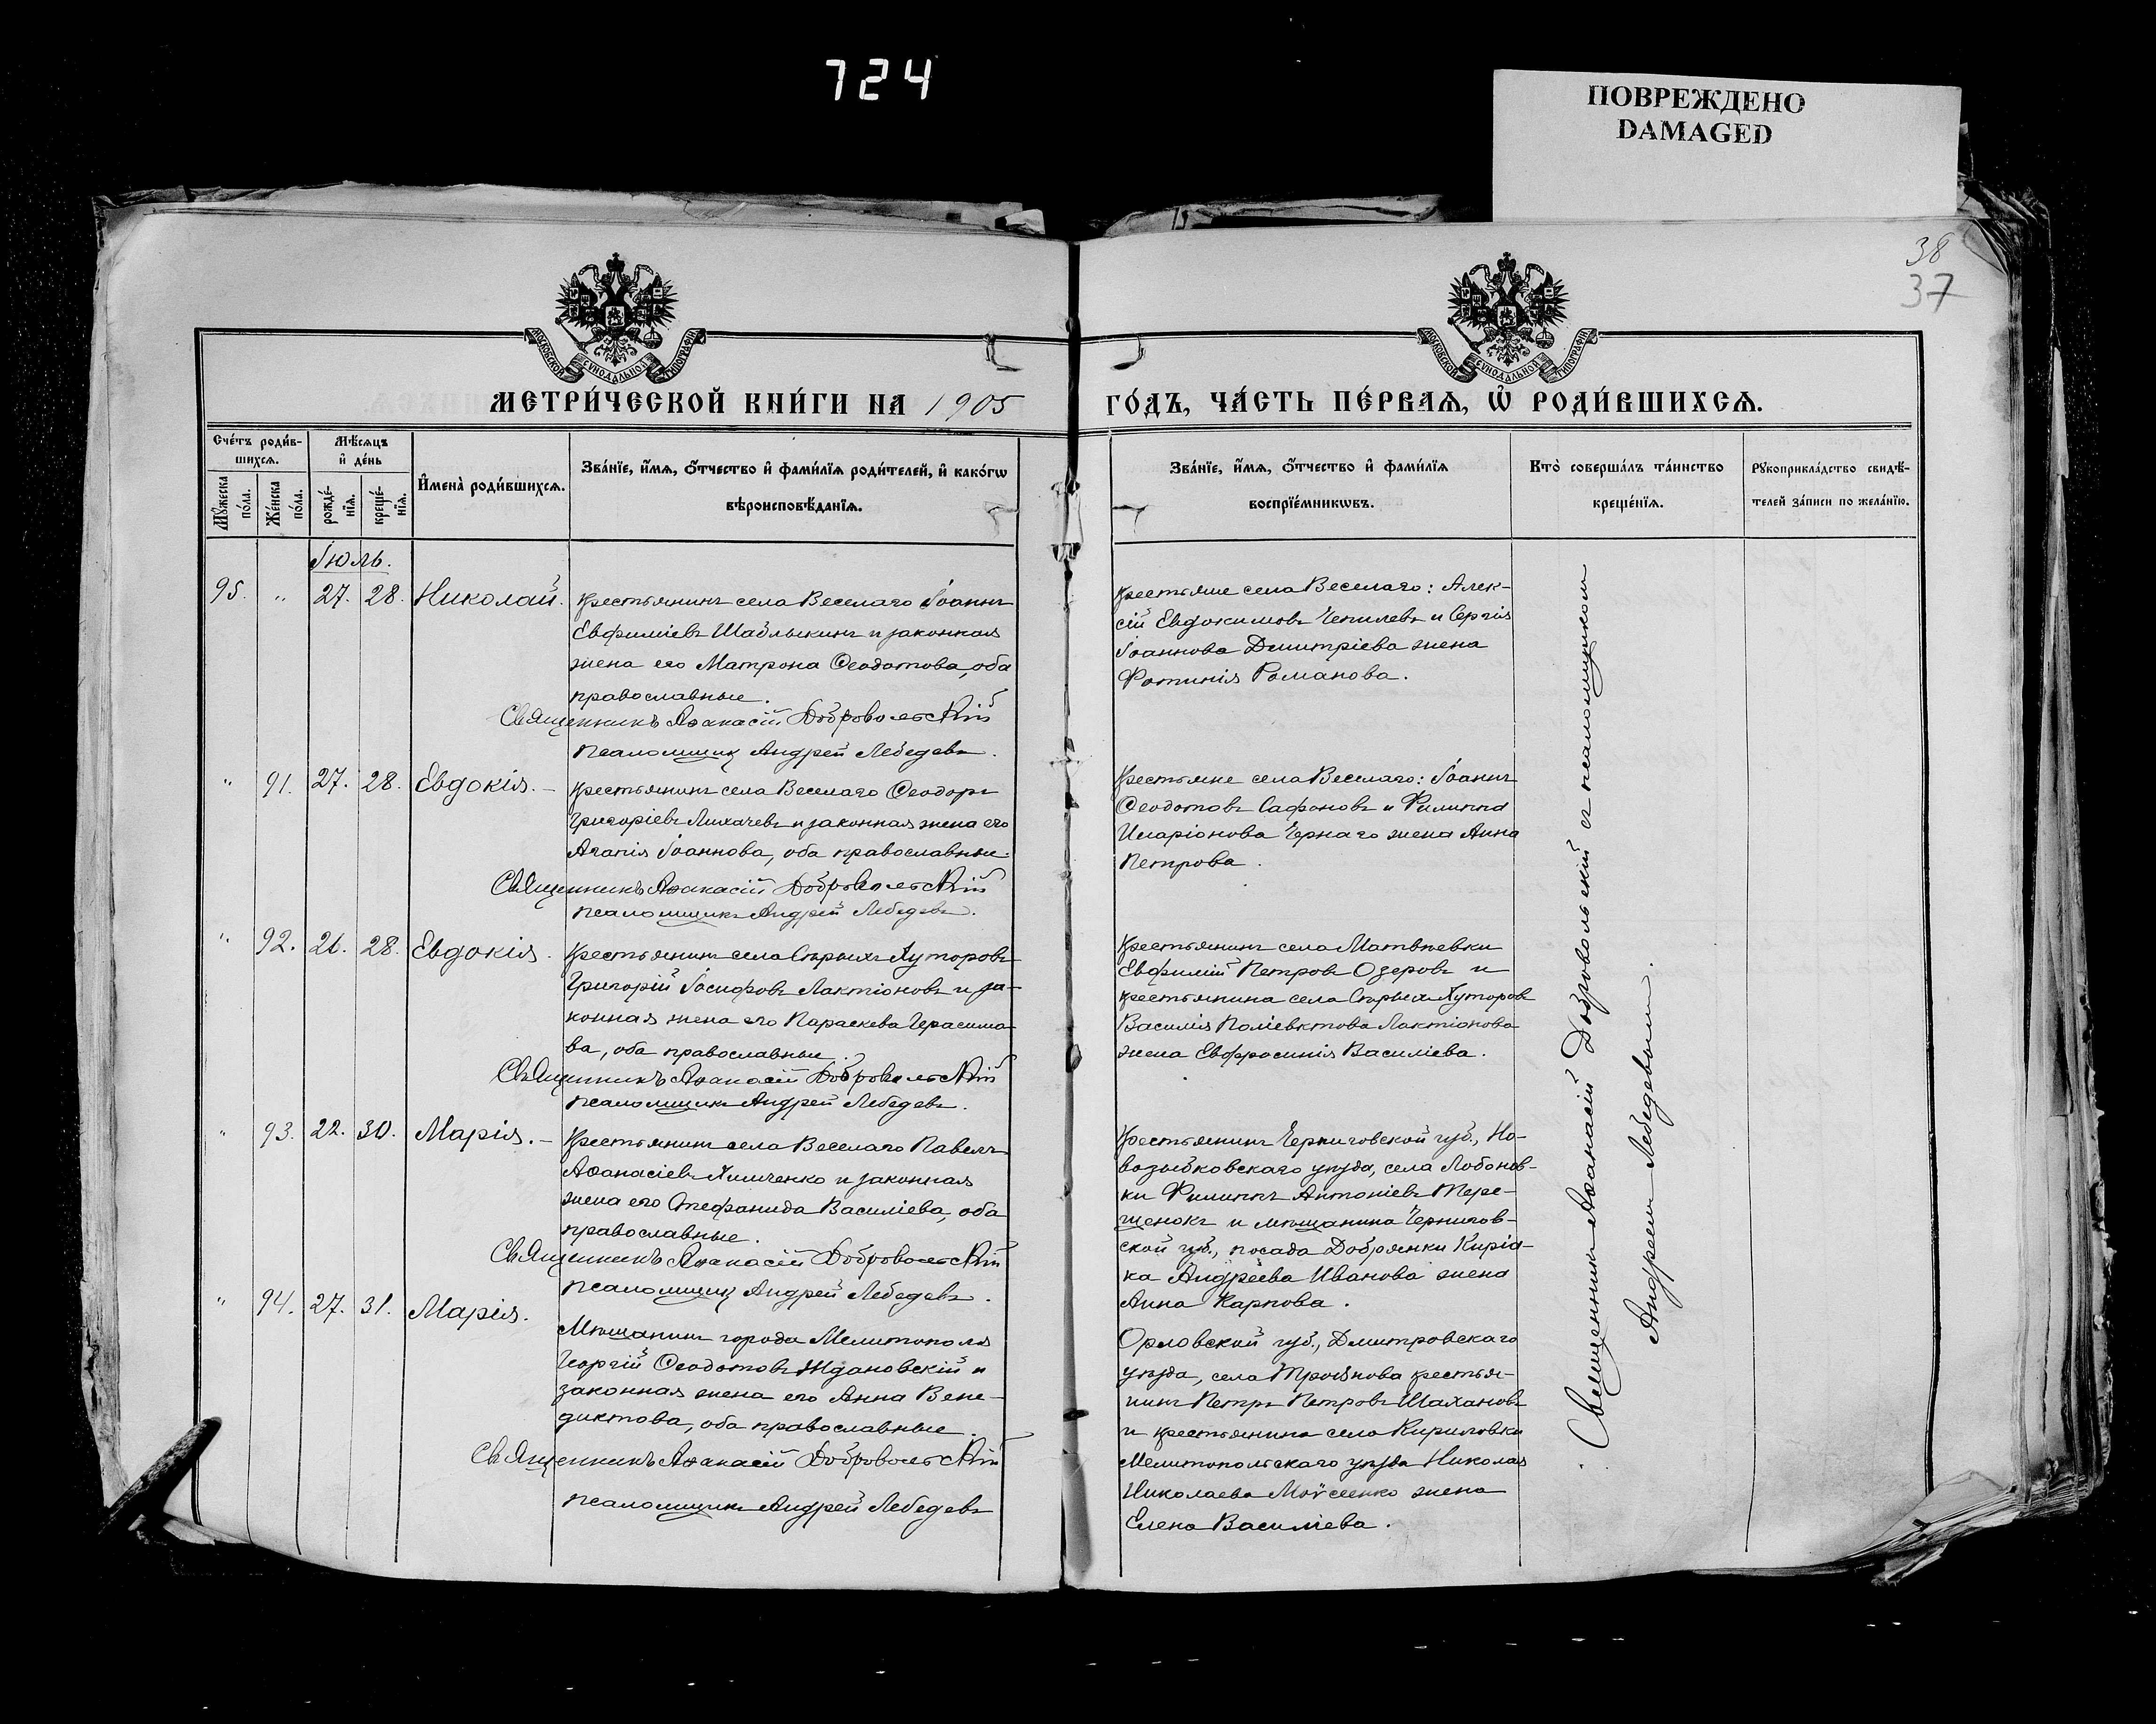 724
ПОВРЕЖДЕНО
DAMAGED
38
37
МОСКОВСКОЙ СУНОДАЛЬНОЙ ТИПОГРАФІИ
МОСКОВСКОЙ СУНОДАЛЬНОЙ ТИПОГРАФІИ
МЕТРИ́ЧЕСКОЙ КНИ́ГИ НА 1905
ГО́ДЪ, ЧА́СТЬ ПЕ́РВАѦ, Ѡ҆ РОДИ́ВШИХСѦ.
Сче́тъ роди́в-
шихсѧ.
Мѣ́сѧцъ
и҆ де́нь
Мꙋ́жеска
по́ла.
Же́нска
по́ла.
рожде́-
нїѧ.
креще́-
нїѧ.
И҆мена̀ роди́вшихсѧ.
Зва́нїе, и҆́мѧ, ѻ҆́тчество и҆ фами́лїѧ роди́телей, и҆ како́гѡ
вѣроисповѣ́данїѧ.
Зва́нїе, и҆́мѧ, ѻ҆́тчество и҆ фами́лїѧ
воспрїе́мникѡвъ.
Кто̀ соверша́лъ та́инство
креще́нїѧ.
Рꙋкоприкла́дство свидѣ́-
телей за́писи по жела́нїю.
Іюль.
95. " 27. 28. Николай.
Крестьянинъ села Веселаго Іоаннъ
Евфиміевъ Шаблыкинъ и законная
жена его Матрона Ѳеодотова, оба
православные.
Священникъ Аѳанасій Добровольскій
Псаломщикъ Андрей Лебедевъ.
Крестьяне села Веселаго: Алек-
сій Евдокимовъ Чепилевъ и Сергія
Іоаннова Димитріева жена
Фотинія Романова.
" 91. 27. 28. Евдокія. –
Крестьянинъ села Веселаго Ѳеодоръ
Григоріевъ Лихачевъ и законная жена его
Агапія Іоаннова, оба православные.
Священникъ Аѳанасій Добровольскій
Псаломщикъ Андрей Лебедевъ.
Крестьяне села Веселаго: Іоаннъ
Ѳеодотовъ Сафоновъ и Филиппа
Иларіонова Чернаго жена Анна
Петрова.
" 92. 26. 28. Евдокія.
Крестьянинъ села Сѣрыхъ Хуторовъ
Григорій Іосифовъ Лактіоновъ и за-
конная жена его Параскева Герасимо-
ва, оба православные.
Священникъ Аѳанасій Добровольскій
Псаломщикъ Андрей Лебедевъ.
Крестьянинъ села Матвѣевки
Евфимій Петровъ Озеровъ и
крестьянина села Сѣрыхъ Хуторовъ
Василія Поліевктова Лактіонова
жена Евфросинія Василіева.
" 93. 22. 30. Марія. –
Крестьянинъ села Веселаго Павелъ
Аѳанасіевъ Химченко и законная
жена его Стефанида Василіева, оба
православные.
Священникъ Аѳанасій Добровольскій
Псаломщикъ Андрей Лебедевъ.
Крестьянинъ Черниговской губ., Но-
возыбковскаго уѣзда, села Лобонов-
ки Филиппъ Антоніевъ Тере-
щенокъ и мѣщанина Чернигов-
ской губ., посада Добрянки Киріа-
ка Андреева Иванова жена
Анна Карпова.
" 94. 27. 31. Марія.
Мѣщанинъ города Мелитополя
Георгій Ѳеодотовъ Ждановскій и
законная жена его Анна Вене-
диктова, оба православные.
Священникъ Аѳанасій Добровольскій
Псаломщикъ Андрей Лебедевъ
Орловской губ., Дмитровскаго
уѣзда, села крестья-
нинъ Петръ Петровъ Шахановъ
и крестьянина села Кириловки
Мелитопольскаго уѣзда Николая
Николаева Моѵсеенко жена
Елена Василіева.
Священникъ Аѳанасій Добровольскій съ псаломщикомъ
Андреемъ Лебедевымъ.